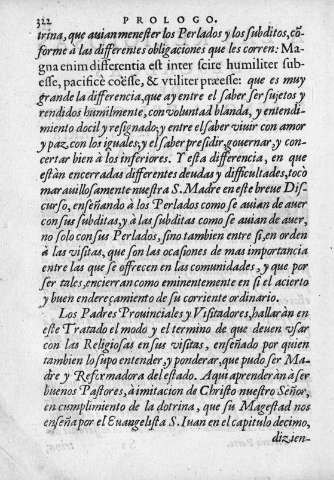 322 PROLOGO.
trina, que auian menester los Perlados y los subditos, cõ-
forme à las differentes obligaciones que les corren: Ma-
gna enim differentia est inter scire humiliter sub-
esse, pacificè coësse, & vtiliter præesse: que es muy
grande la differencia, que ay entre el saber ser sujetos y
rendidos humilmente, con voluntad blanda, y entendi-
miento docil y resignado; y entre el saber viuir con amor
y paz con los iguales, y el saber presidir, gouernar, y con-
certar bien à los inferiores. Y esta differencia, en que
estàn encerradas differentes deudas y difficultades, tocò
marauillosamente nuestra S. Madre en este breue Dis-
curso, enseñando à los Perlados como se auian de auer
con sus subditas, y à las subditas como se auian de auer,
no solo con sus Perlados, sino tambien entre si, en orden
à las visitas, que son las ocasiones de mas importancia
entre las que se offrecen en las comunidades, y que por
ser tales, encierran como eminentemente en si el acierto
y buen endereçamiento de su corriente ordinario.
Los Padres Prouinciales y Visitadores, hallaràn en
este Tratado el modo y el termino de que deuen vsar
con las Religiosas en sus visitas, enseñado por quien
tambien lo supo entender, y ponderar, que pudo ser Ma-
dre y Reformadora del estado. Aqui aprenderàn à ser
buenos Pastores, à imitacion de Christo nuestro Señor,
en cumplimiento de la dotrina, que su Magestad nos
enseña por el Euangelista S. Iuan en el capitulo decimo,
dizien-